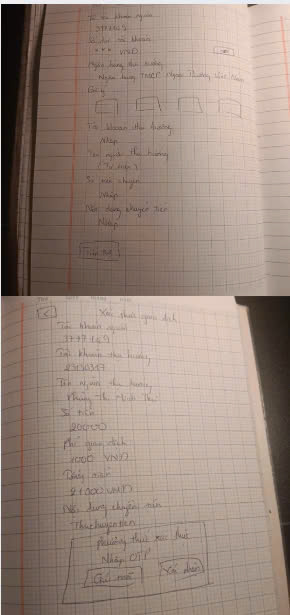 Từ tài khoản nguồn
3777149
Số dư tài khoản
*** VND
Ngân hàng thụ hưởng
Ngân hàng TMCP Ngoại Thương Việt Nam
Gợi ý
Tài khoản thụ hưởng
Nhập
Tên người thụ hưởng
(Tự hiện)
Số tiền chuyển
Nhập
Nội dung chuyển tiền
Nhập
<
Xác thực giao dịch
Tài khoản nguồn
3777149
Tài khoản thụ hưởng
Tên người thụ hưởng
Phùng Thị Minh Thư
Số tiền
20000
Phí giao dịch
1000 VND
Tổng tiền
21000 VND
Nội dung chuyển tiền
Thu chuyen tien
Phương thức xác thực
Nhập OTP
Xác nhận